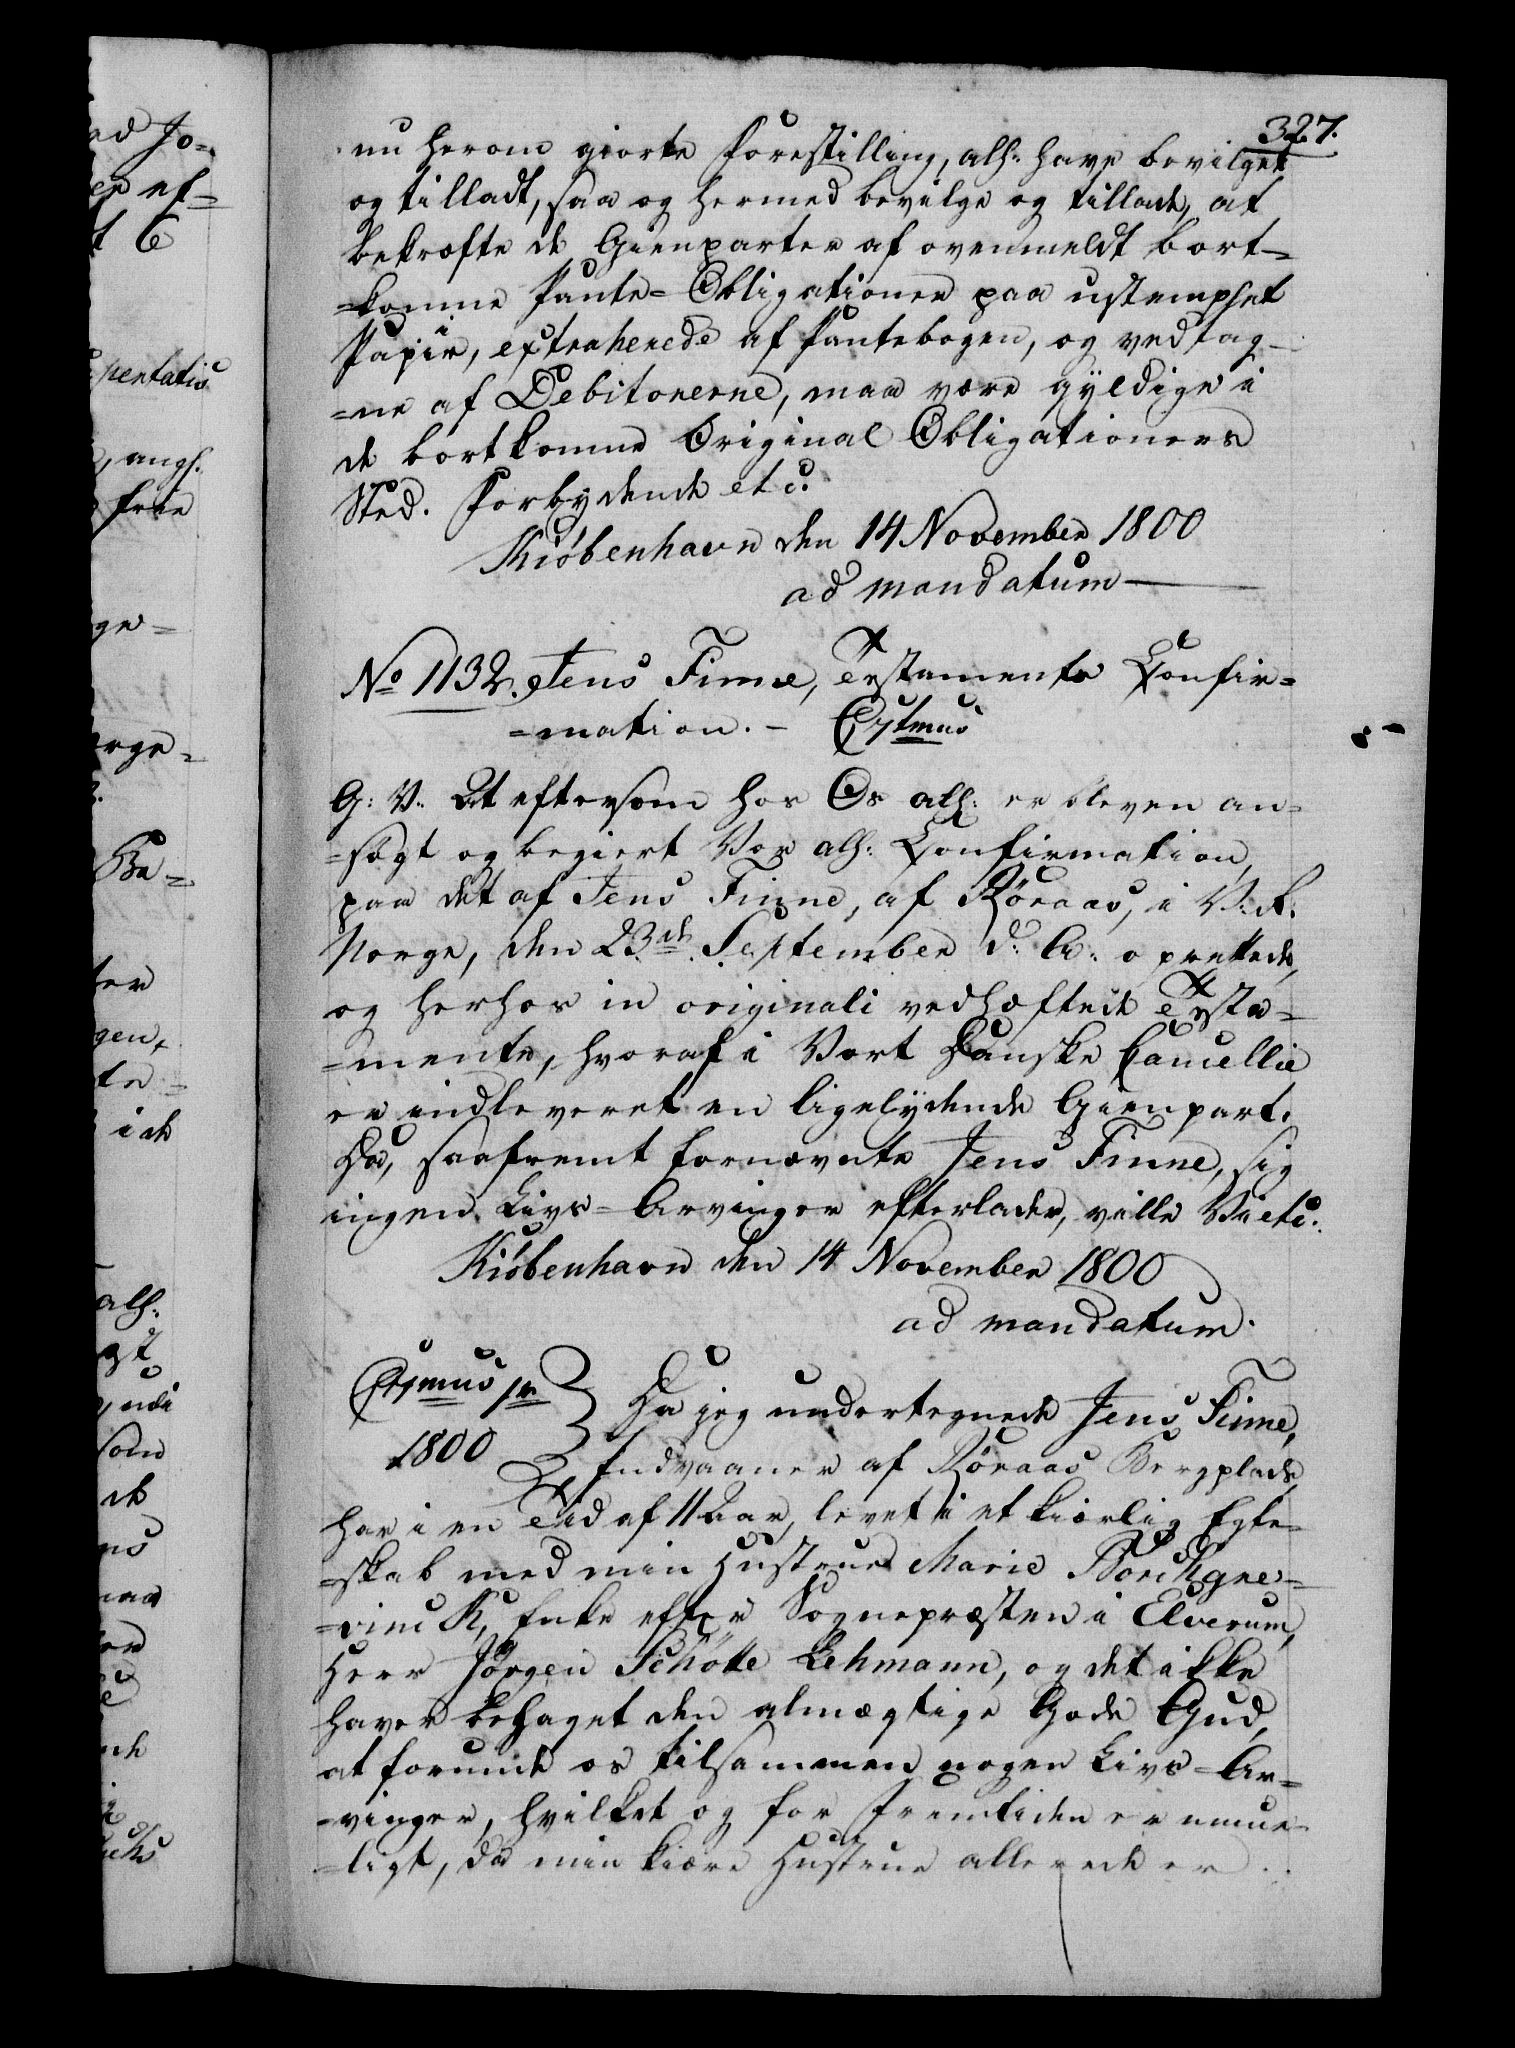 327.
nu herom giorte Forestilling, alh: have bevilget
og tilladt, saa og hermed bevilge og tillade, at
bekræftede Gienparter af ovenmeldt bort-
=komne Pante-Obligationer paa ustemplet
Papir, extraherede af Pantebogen, og vedtag-
=ne af Debitorerne, maa være gyldige i
de bortkomne Original Obligationers
Sted. Forbydende etc.
Kiøbenhavn den 14 November 1800
ad mandatum
No 1132. Jens Finne, Testamente Confir=
=mation. -
G: V: At eftersom hos Os alh: er bleven an=
=søgt og begiert Vor alh: Confirmation,
paa det af Jens Finne, af Röraas, i V: R:
Norge, den 23de September d: A: oprettede,
og herhos in originali vedhæftede Testa=
=mente, hvoraf i Vort Danske Cancellie
er indleveret en ligelydende Gienpart.
Da, saafremt fornævnte Jens Finne, sig
ingen Livs-Arvinger efterlader, ville Vi etc.
Kiøbenhavn den 14 November 1800
ad mandatum.
1800
Da jeg undertegnede Jens Finne,
Indvaaner af Röraas Bergplads,
har i en Tid af 11 Aar, levet i et kierlig Egte-
=skab med min Hustrue Marie Borchgre-
=vinck, Enke efter Sognepræsten i Elverum,
Herr Jörgen Schøtte Lehmann, og det ikke
haver behaget den almægtige Gode Gud,
at forunde os tilsammen nogen Livs-Ar=
=vinger, hvilket og for Fremtiden er umue-
=ligt, da min kiære Hustrue allerede er